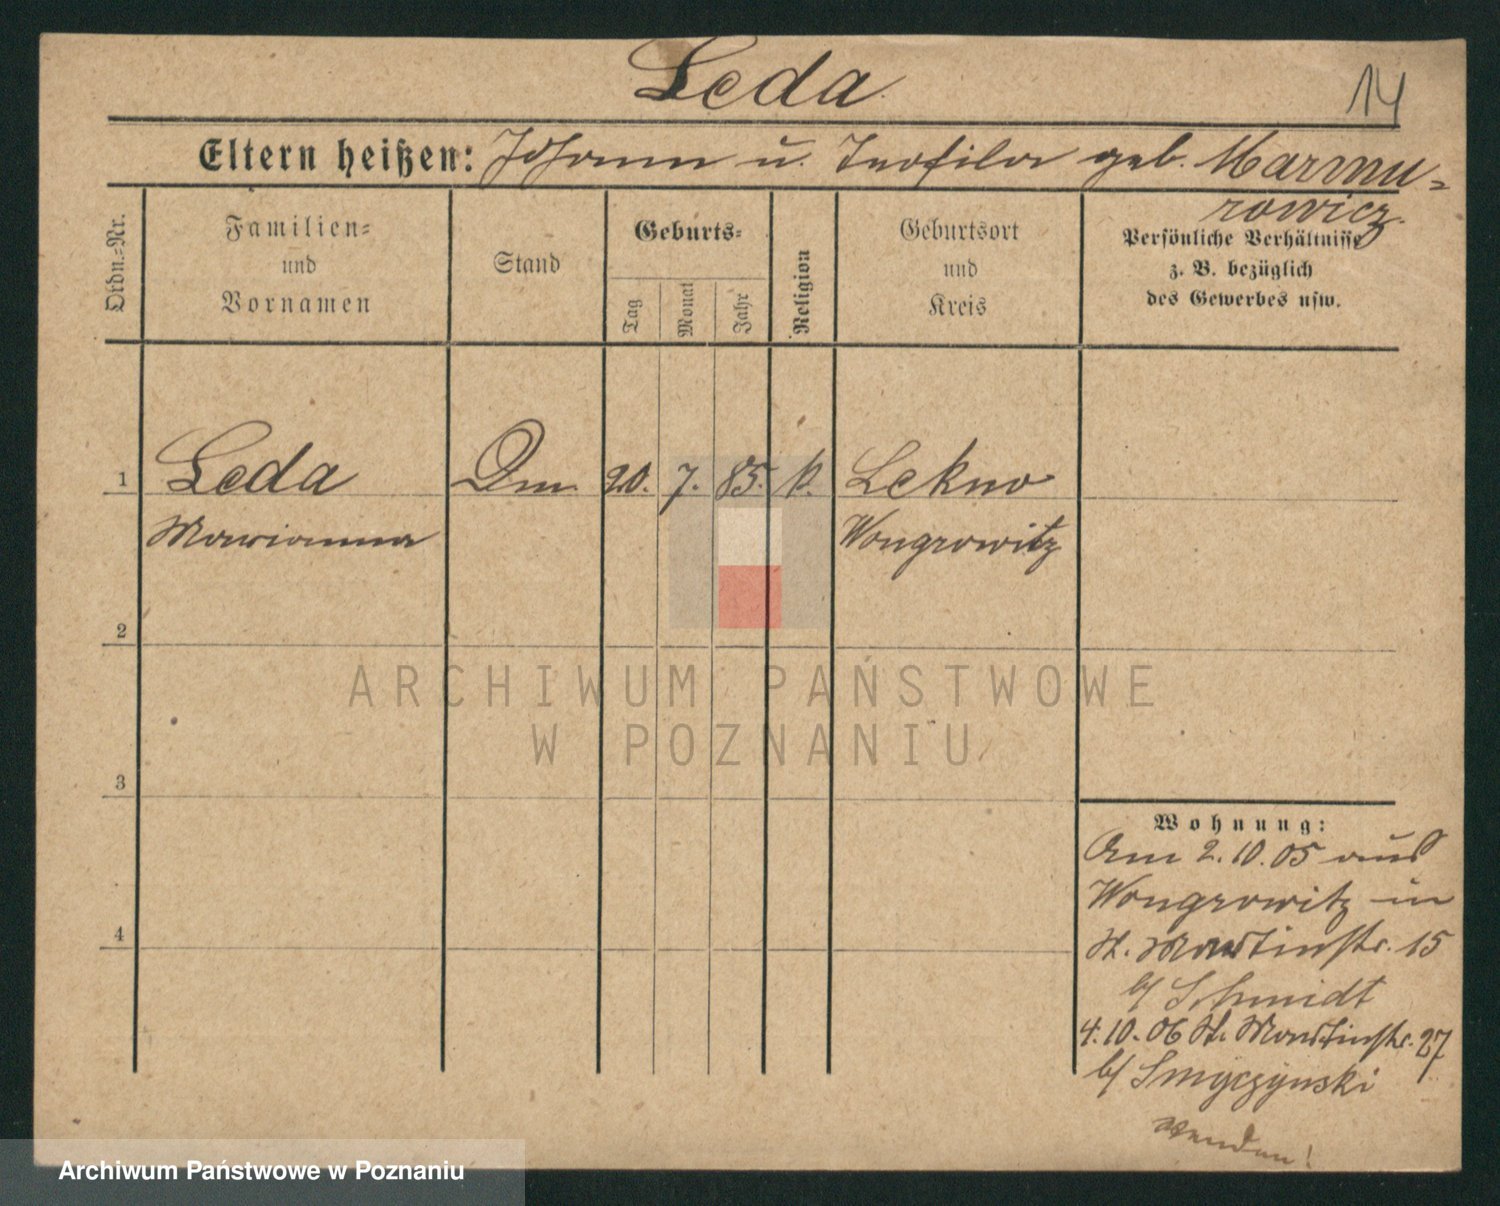 Leda
14
Eltern heißen: Johann u. Teofila geb. Marmu-
rowicz.
Ordn.-Nr.
Familien-
und
Vornamen
Stand
Geburts-
Tag
Monat
Jahr
Religion
Geburtsort
und
Kreis
Persönliche Verhältnisse
z. B. bezüglich
des Gewerbes usw.
1 Leda Dm. 20. 7. 85. k. Lekno
Marianna Wongrowitz
2
3
4
ARCHIWUM PAŃSTWOWE
W POZNANIU
Wohnung:
Am 2.10.05 aus
Wongrowitz in
St. Martinstr. 15
b/ Schmidt
4.10.06 St. Martinstr. 27
b/ Smyczynski
wenden!
Archiwum Państwowe w Poznaniu